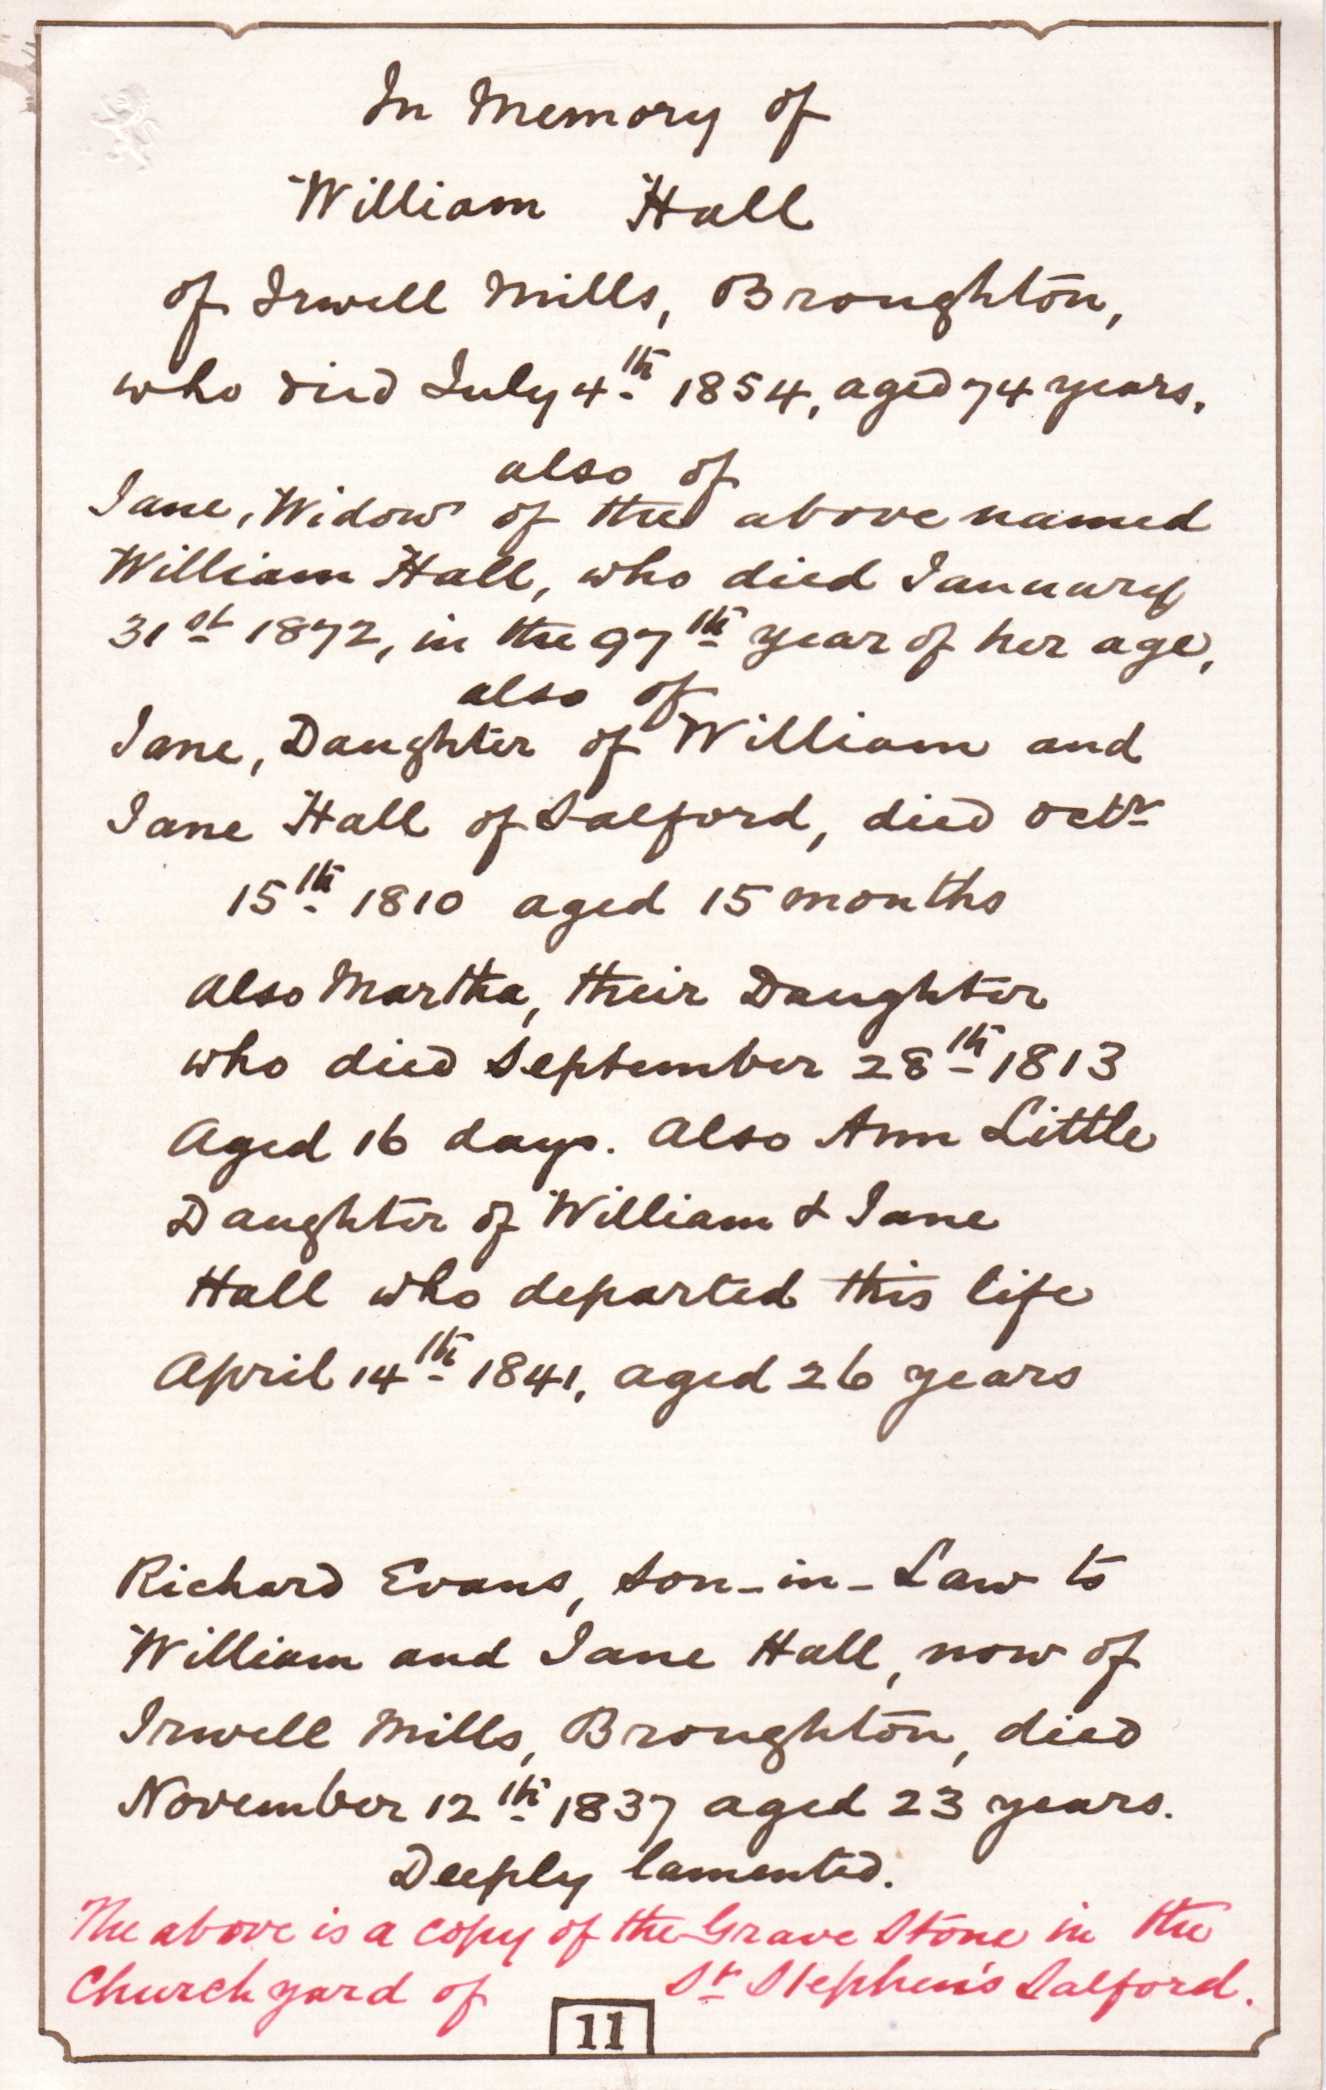 In Memory of
William Hall
of Irwell Mills, Broughton,
who died July 4th 1854, aged 74 years,
also of
Jane, Widow of the above named
William Hall, who died January
31st 1872, in the 97th year of her age,
also of
Jane, Daughter of William and
Jane Hall of Salford, died Octr
15th 1810 aged 15 months
Also Martha, their Daughter
who died September 28th 1813
Aged 16 days. Also Ann Little
Daughter of William & Jane
Hall who departed this life
April 14th 1841, aged 26 years
Richard Evans, Son-in-Law to
William and Jane Hall, now of
Irwell Mills, Broughton, died
November 12th 1837 aged 23 years.
Deeply lamented.
The above is a copy of the Grave Stone in the
Church yard of St Stephen's Salford.
11